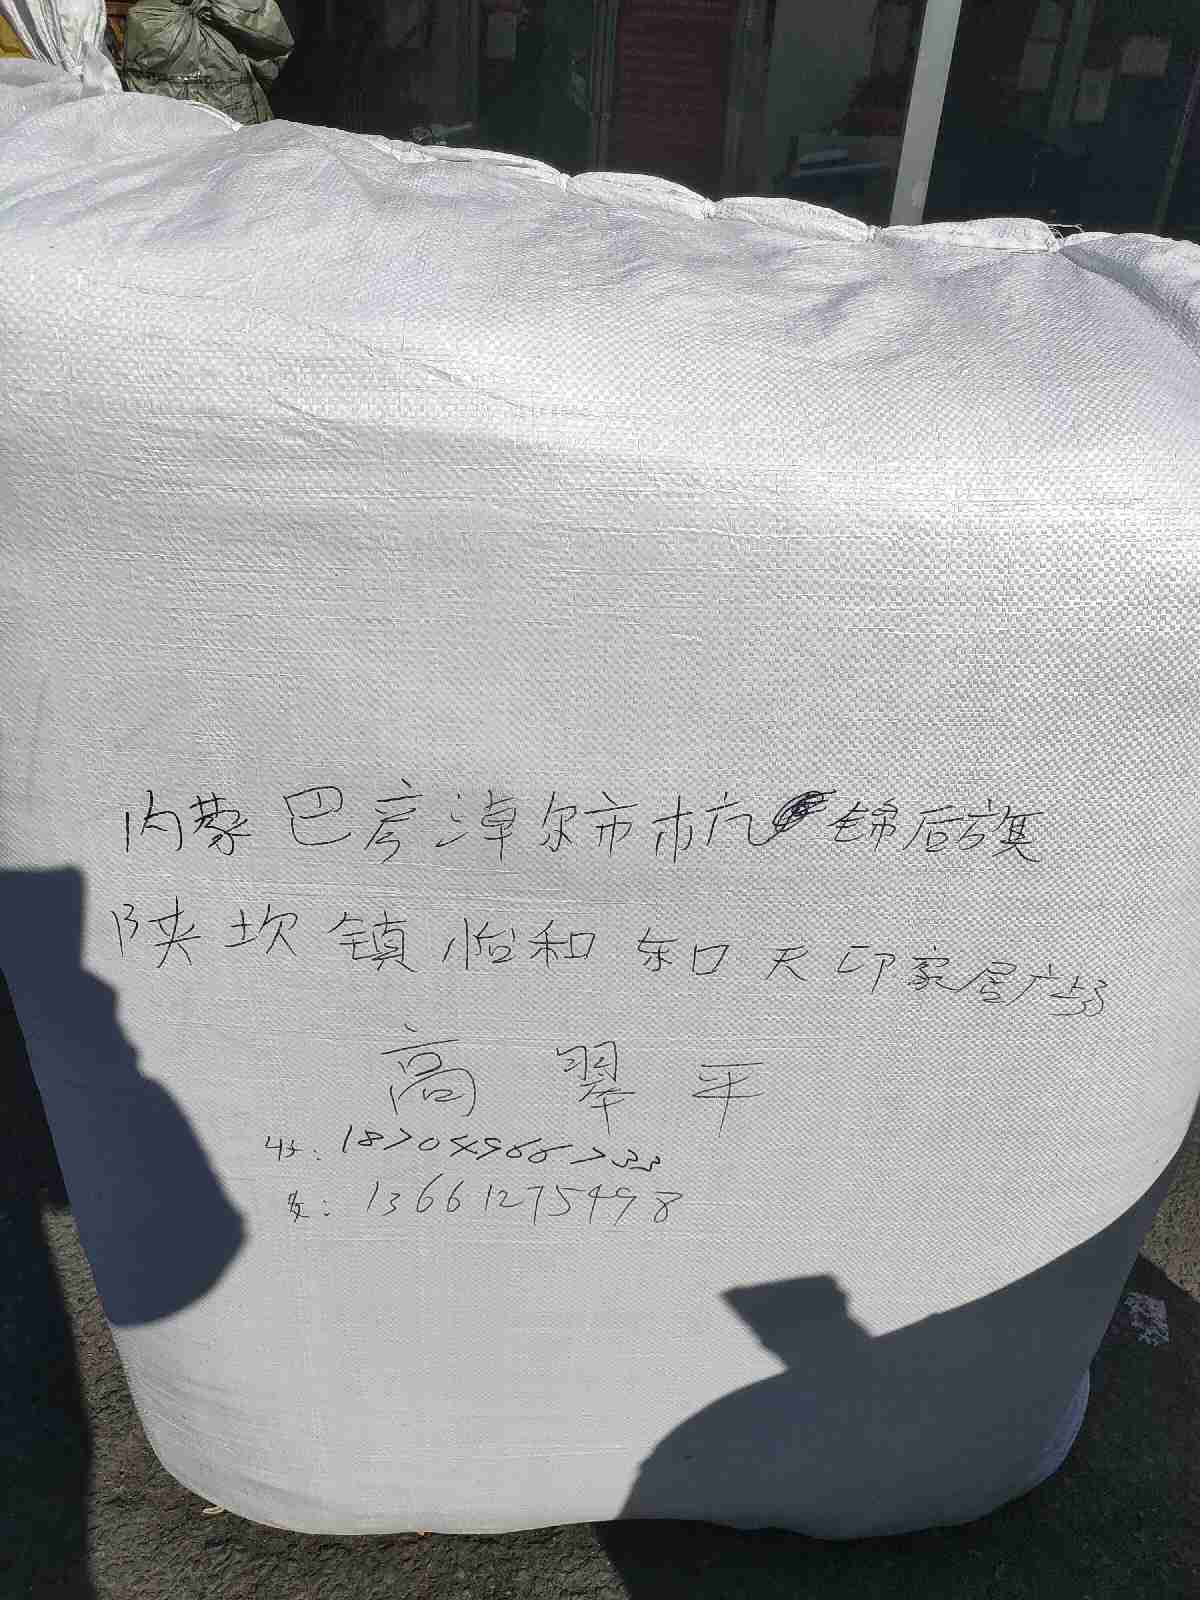 内蒙巴彦淖尔市杭锦后旗
陕坝镇怡和东口天印家居广场
高翠平
收：18704966733
发：13661275498